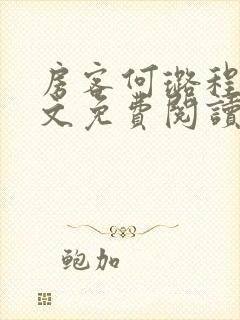 房客何璐程
文免費閱讀
鲍加